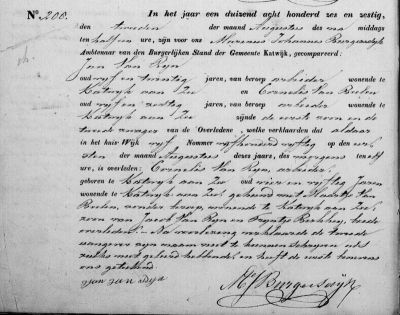 Nº 200.
In het jaar een duizend acht honderd zes en zestig,
den tweeden der maand Augustus des na middags
ten half ure, zijn voor ons Marinus Johannes Burgersdijk
Ambtenaar van den Burgerlijken Stand der Gemeente Katwijk, gecompareerd:
Jan Van Rijn
oud vijf en twintig jaren, van beroep arbeider wonende te
Katwijk aan Zee en Cornelis Van Beelen
oud vijf en zestig jaren, van beroep arbeider wonende te
Katwijk aan Zee zijnde de eerste zoon en de
tweede zwager van de Overledene, welke verklaarden dat aldaar
in het huis Wijk Nommer vijfhonderd vijftig op den
eersten der maand Augustus dezes jaars, des morgens ten elf
ure, is overleden: Cornelis Van Rijn, arbeider,
geboren te Katwijk aan Zee oud vier en vijftig Jaren
wonende te Katwijk aan Zee, gehuwd met Van
Beelen, zonder beroep, wonende te Katwijk aan Zee,
zoon van Jacob Van Rijn en beide
overleden. Na voorlezing verklaarde de tweede
aangever zijn naam niet te kunnen schrijven als
zulks niet geleerd hebbende, en heeft de eerste benevens
ons geteekend.
Jan van Rijn
MJ Burgersdijk